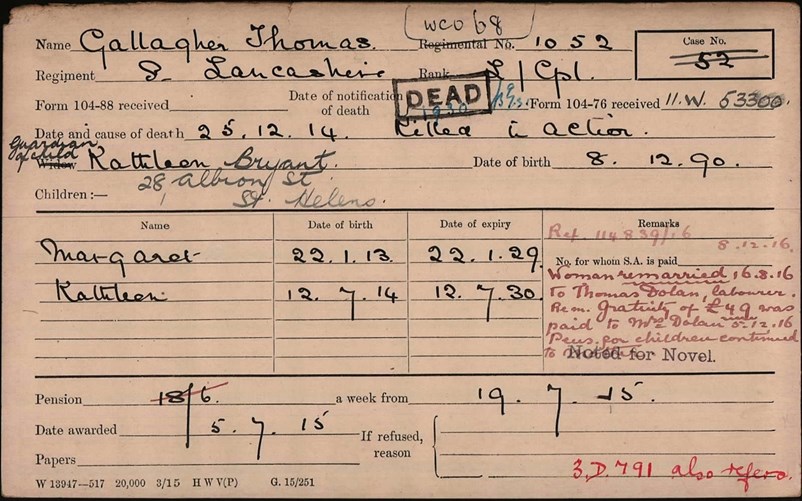 WCO 68
Name Gallagher Thomas. Regimental No. 1052
Case No.
52
Regiment S. Lancashire Rank L/Cpl.
Form 104-88 received Date of notification of death DEAD Form 104-76 received 11.W. 53300
Date and cause of death 25.12.14. Killed in action.
Guardian of child
Widow Kathleen Bryant. Date of birth 8. 12. 90.
28 Albion St
St. Helens.
Children :—
Name Date of birth Date of expiry Remarks
Ref. 114839/16
8.12.16.
Margaret 22.1.13. 22.1.29.
No. for whom S.A. is paid
Kathleen 12. 7. 14 12. 7. 30.
Woman remarried 16.8.16
to Thomas Dolan, labourer.
Rem. gratuity of £49 was
paid to Mrs Dolan 5.12.16
Pens. for children continued
to
Noted for Novel.
Pension 18/6. a week from 19. 7. 15.
Date awarded 5. 7. 15
If refused, reason
Papers
3.D.791 also refers.
W 13947—517 20,000 3/15 H W V(P) G. 15/251